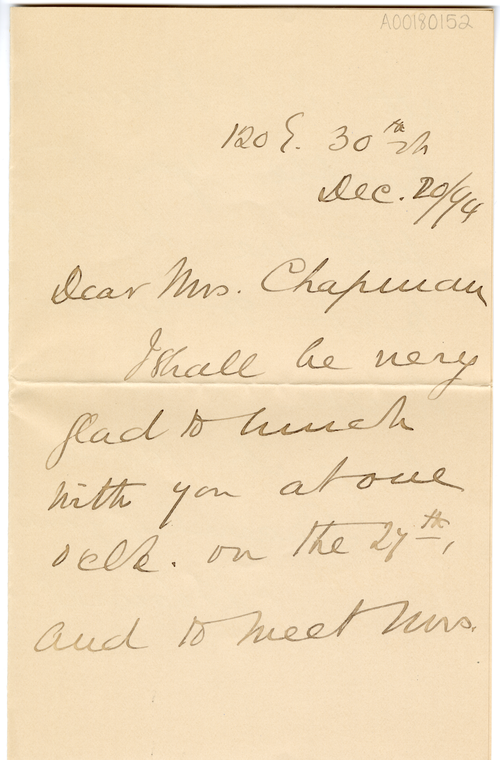 A00180152
120 E. 30th St
Dec. 20/94
Dear Mrs. Chapman
I shall be very
glad to lunch
with you at one
oclk. on the 27th,
and to meet Mrs.